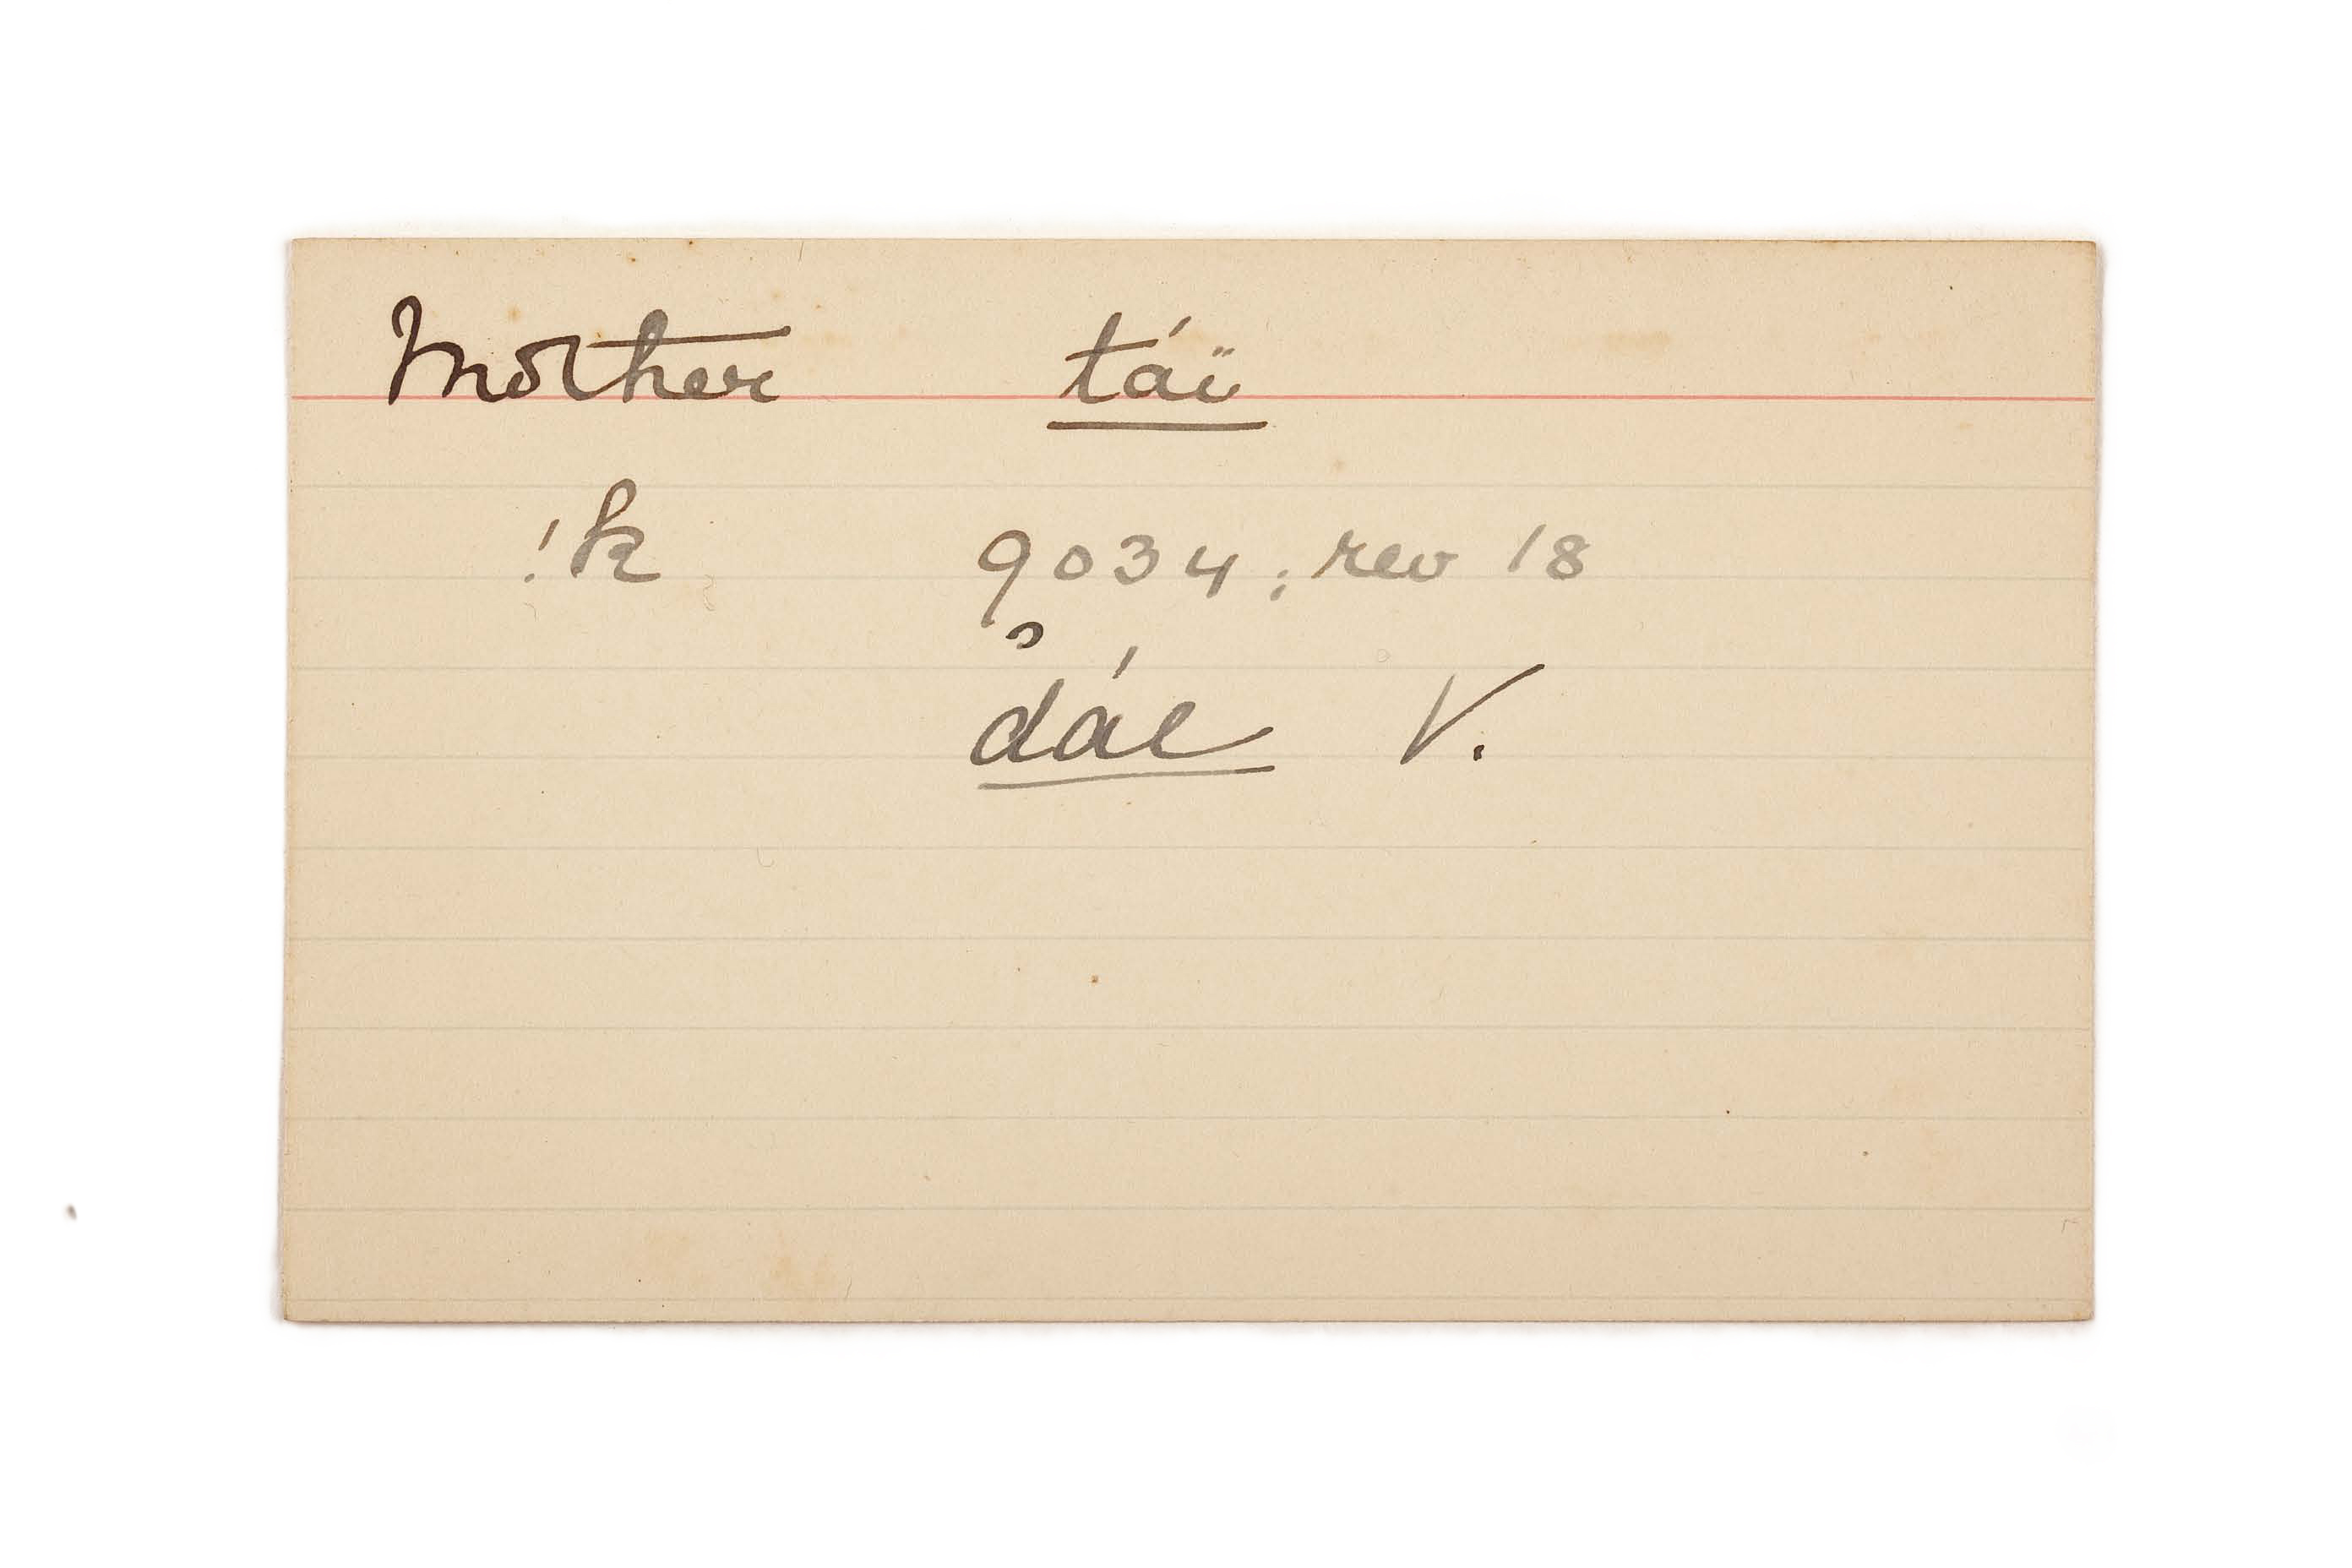 Mother táï
!k 9034; rev 18
dác V.